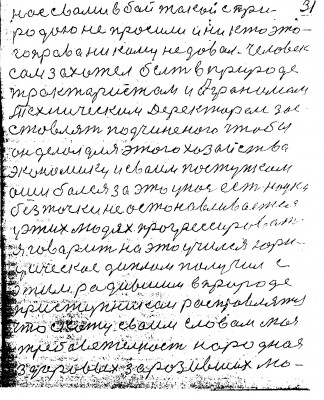 нас самими в бой такой с при- 31
родою не просили и никто это-
го права никому не довал. Человек
сам захотел быть в природе
трактаристам и аграномам
Техническим деректорам зас
ставлят подчиненого чтобы
он делал для этого хозяйства
экономику и сваим поступкам
ошибался за это у нас есть наука
без точки не останавливается
у этих людях прогрессироват
я говарит на это учился юри-
дическое диплом получил с
этим радившим в природе
приступникам расправлятся
что скажу сваим словам моя
требавательност народная
здоровых заразивших